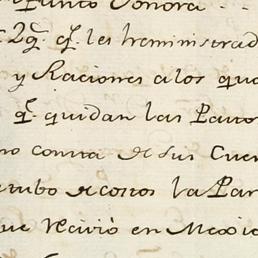 Sonora
2q. q.e les heministrad
y Raciones alos que
q.e quidan las Parto
no consta de sus Cuen
tubo de costos la Par
que recivió en Mexic